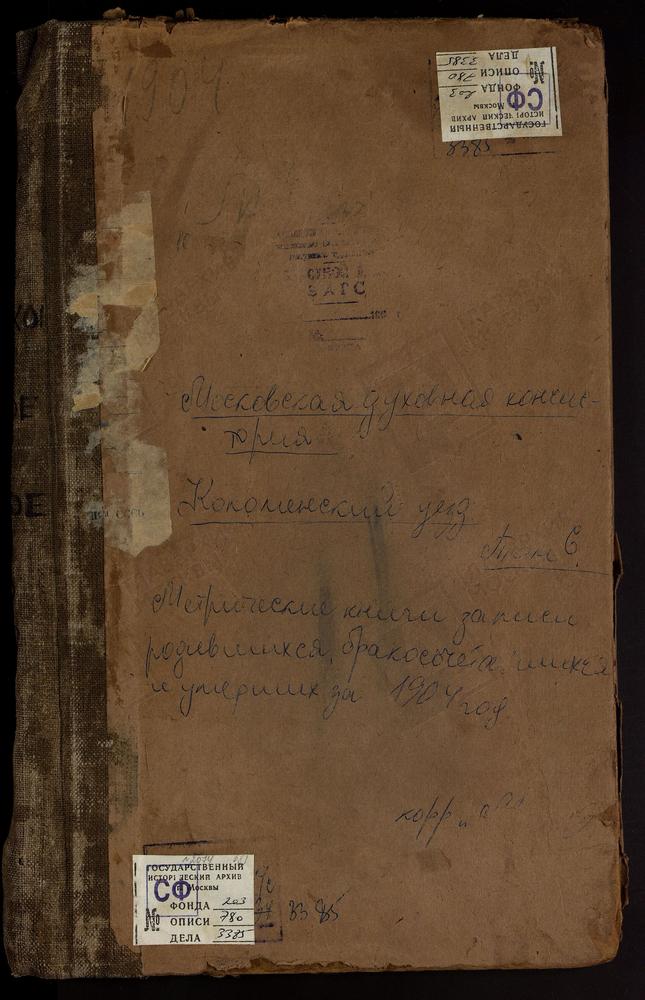 1904
ГОСУДАРСТВЕННЫЙ
ИСТОРИЧЕСКИЙ АРХИВ
Москвы
СФ
ФОНДА 203
№ ОПИСИ 780
ДЕЛА 3385
3385
ЗАГС
Московская духовная консис-
тория
Коломенский уезд
Том 6
Метрические книги записи
родившихся, бракосочетавшихся
и умерших за 1904 год
ГОСУДАРСТВЕННЫЙ
ИСТОРИЧЕСКИЙ АРХИВ
г. Москвы
СФ
ФОНДА 203
№ ОПИСИ 780
ДЕЛА 3385
3385